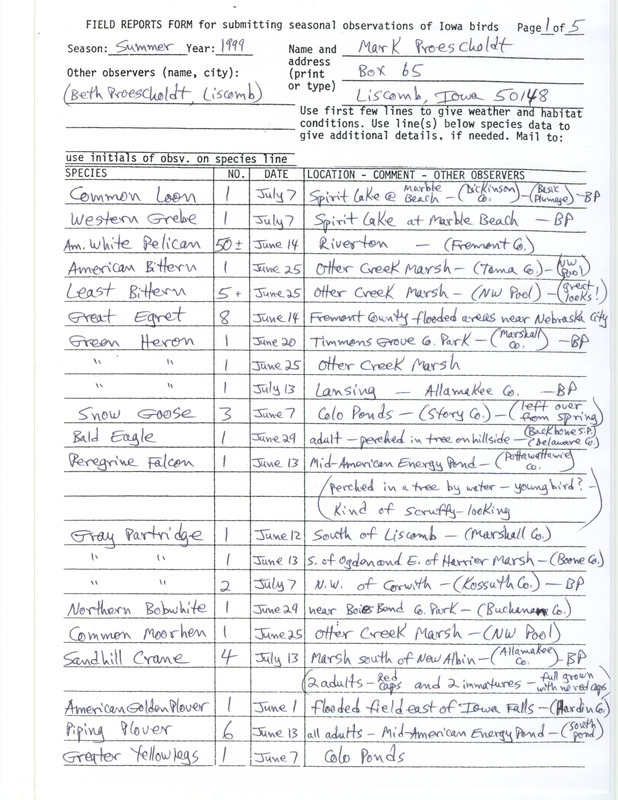 FIELD REPORTS FORM for submitting seasonal observations of Iowa birds Page 1 of 5
Season: Summer Year: 1999
Name and address (print or type) Mark Proescholdt
Box 65
Liscomb, Iowa 50148
Other observers (name, city):
(Beth Proescholdt, Liscomb)
Use first few lines to give weather and habitat
conditions. Use line(s) below species data to
give additional details, if needed. Mail to:
use initials of obsv. on species line
SPECIES NO. DATE LOCATION - COMMENT - OTHER OBSERVERS
Common Loon 1 July 7 Spirit Lake @ Marble Beach - (Dickinson) - (Basic Plumage) - BP
Western Grebe 1 July 7 Spirit Lake at Marble Beach - BP
Am. White Pelican 50± June 14 Riverton - (Fremont Co.)
American Bittern 1 June 25 Otter Creek Marsh - (Tama Co.) - (NW Pool)
Least Bittern 5+ June 25 Otter Creek Marsh - (NW Pool) - (great looks!)
Great Egret 8 June 14 Fremont County flooded areas near Nebraska City
Green Heron 1 June 20 Timmons Grove Co. Park - (Marshall Co.) - BP
" " 1 June 25 Otter Creek Marsh
" " 1 July 13 Lansing - Allamakee Co. - BP
Snow Goose 3 June 7 Colo Ponds - (Story Co.) - (left over from spring)
Bald Eagle 1 June 29 adult - perched in tree on hillside - (Backbone S.P.) (Delaware Co.)
Peregrine Falcon 1 June 13 Mid-American Energy Pond - (Pottawattamie Co.)
(Perched in a tree by water - young bird? -
Kind of scruffy-looking)
Gray Partridge 1 June 12 South of Liscomb - (Marshall Co.)
" " 1 June 13 S. of Ogden and E. of Harrier Marsh - (Boone Co.)
" " 2 July 7 N.W. of Corwith - (Kossuth Co.) - BP
Northern Bobwhite 1 June 29 near Boies Bend Co. Park - (Buchanan Co.)
Common Moorhen 1 June 25 Otter Creek Marsh - (NW Pool)
Sandhill Crane 4 July 13 Marsh south of New Albin - (Allamakee Co.) - BP
(2 adults - red caps and 2 immatures - full grown with no red caps
American Golden Plover 1 June 1 flooded field east of Iowa Falls - (Hardin Co.)
Piping Plover 6 June 13 all adults - Mid-American Energy Pond - (south pond)
Greater Yellowlegs 1 June 7 Colo Ponds